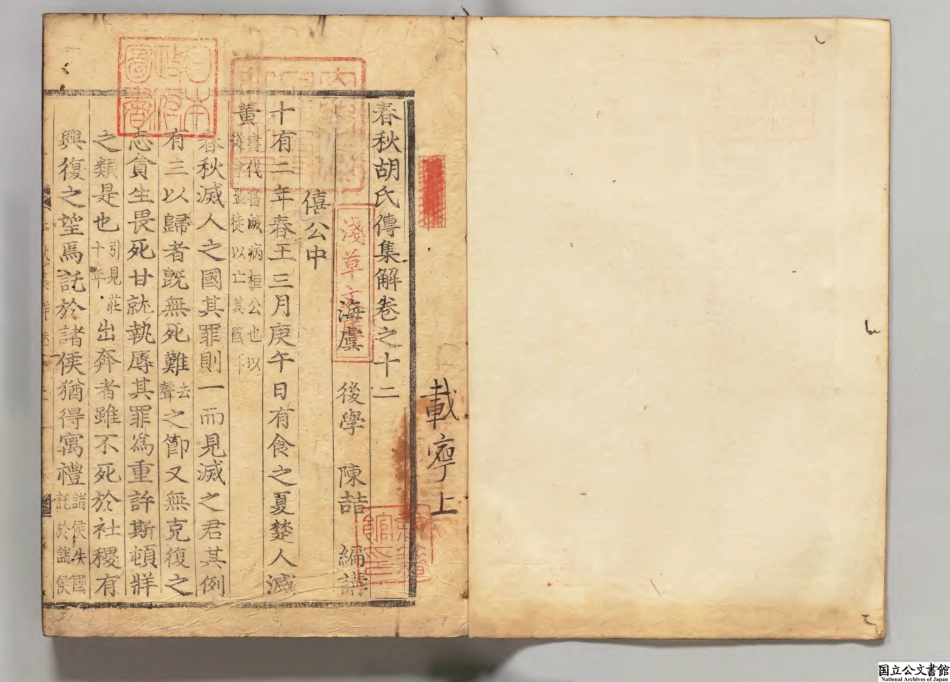 載寧上
春秋胡氏傳集解卷之十二
海虞 後學 陳喆 編講
僖公中
十有二年春王三月庚午日有食之夏楚人滅
黃
春秋滅人之國其罪則一而見滅之君其例
有三以歸者旣無死難去聲之節又無克復之
志貪生畏死甘就執辱其罪爲重許斯頓牂
之類是也引見莊十年出奔者雖不死於社稷有
興復之望焉託於諸侯猶得寓禮諸侯失國託於諸侯
日本政府圖書
淺草文庫
国立公文書館
National Archives of Japan